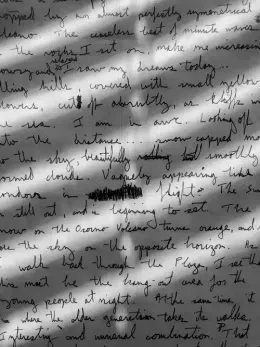 topped by an almost perfectly symmetrical
volcano. The ceaseless beat of minute waves
the rocks I sit on, make me increasingly
drowsy and I saw my dreams today...
hills covered with small yellow
flowers, cut off absurdly, as
sea. I am in awe. Looking off
into the distance... snow capped
the sky, beautifully smoothly
formed clouds. Vaguely appearing like
condors in flight. The Sun
still out, and is beginning to set. The
snow on the Osorno Volcano turns orange, and
the sky on the opposite horizon. As
walk back through the Plaza, I see
this must be the hang out area for the
young people at night. At the same time, it
the older generation takes its walks.
Interesting and unusual combination. That